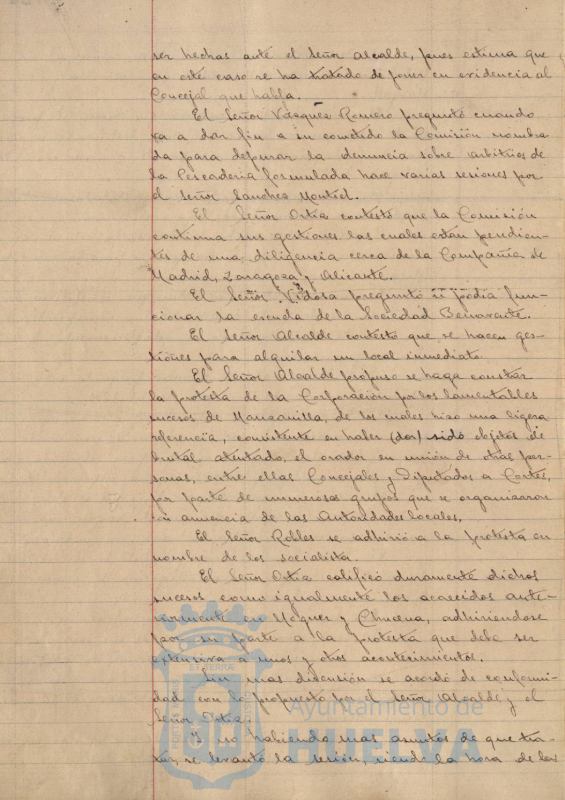 ser hechas ante el Señor Alcalde, pues estima que
en este caso se ha tratado de poner en evidencia al
Concejal que habla.
El Señor Vázquez Romero preguntó cuando
va a dar fin a su cometido la Comisión nombra-
da para depurar la denuncia sobre arbitrios de
la Pescaderia formulada hace varias sesiones por
el Señor Sanchez Montiel.
El Señor Ortiz contestó que la Comisión
continua sus gestiones las cuales están pendien-
tes de una diligencia cerca de la Compañía de
Madrid, Zaragoza y Alicante.
El Señor Vidosa preguntó si podía fun-
cionar la escuela de la Sociedad Benavente.
El Señor Alcalde contestó que se hacen ges-
tiones para alquilar un local inmediato.
El Señor Alcalde propuso se haga constar
la protesta de la Corporación por los lamentables
sucesos de Manzanilla, de los cuales hizo una ligera
referencia, consistente en haber sido objetos de
brutal atentado, el orador en unión de otras per-
sonas, entre ellas Concejales y Diputados a Cortes,
por parte de numerosos grupos que se organizaron
con anuencia de las Autoridades locales.
El Señor Robles se adhirió a la protesta en
nombre de los socialista.
El Señor Ortiz calificó duramente dichos
sucesos como igualmente los acaecidos ante-
riormente en Moguer y Chucena, adhiriendose
por su parte a la protesta que debe ser
extensiva a unos y otros acontecimientos.
Sin mas discusión se acordó de conformi-
dad con lo propuesto por el Señor Alcalde y el
Señor Ortiz.
Y no habiendo mas asuntos de que tra-
tar, se levantó la sesión, siendo la hora de las
Ayuntamiento de
HUELVA